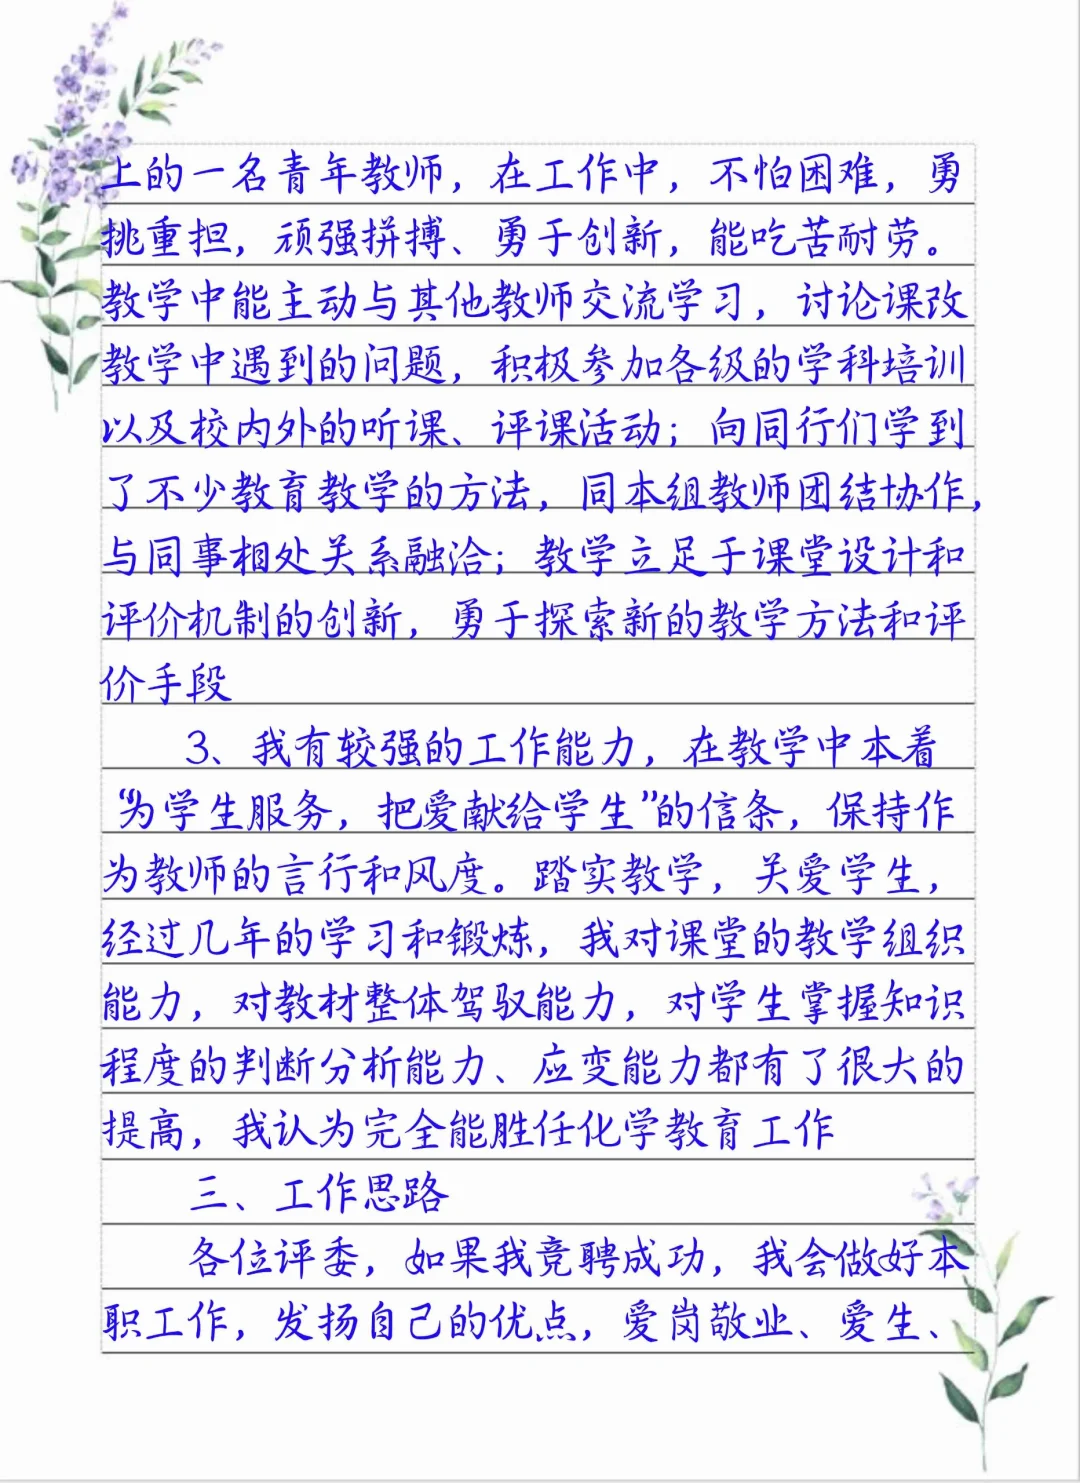 上的一名青年教师，在工作中，不怕困难，勇
挑重担，顽强拼搏、勇于创新，能吃苦耐劳。
教学中能主动与其他教师交流学习，讨论课改
教学中遇到的问题，积极参加各级的学科培训
以及校内外的听课、评课活动；向同行们学到
了不少教育教学的方法，同本组教师团结协作，
与同事相处关系融洽；教学立足于课堂设计和
评价机制的创新，勇于探索新的教学方法和评
价手段
3、我有较强的工作能力，在教学中本着
“为学生服务，把爱献给学生”的信条，保持作
为教师的言行和风度。踏实教学，关爱学生，
经过几年的学习和锻炼，我对课堂的教学组织
能力，对教材整体驾驭能力，对学生掌握知识
程度的判断分析能力、应变能力都有了很大的
提高，我认为完全能胜任化学教育工作
三、工作思路
各位评委，如果我竞聘成功，我会做好本
职工作，发扬自己的优点，爱岗敬业、爱生、